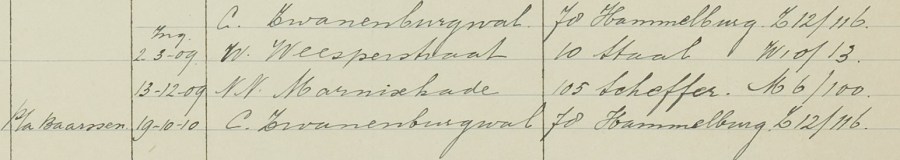 C. Zwanenburgwal 78 Hammelburg. Z12/116.
Ing.
2-3-09 W. Weesperstraat 10 Staal W10/13.
13-12-09 N.N. Marnixkade 105 Scheffer. M6/100.
p/a Baarssen 19-10-10 C. Zwanenburgwal 78 Hammelburg. Z12/116.